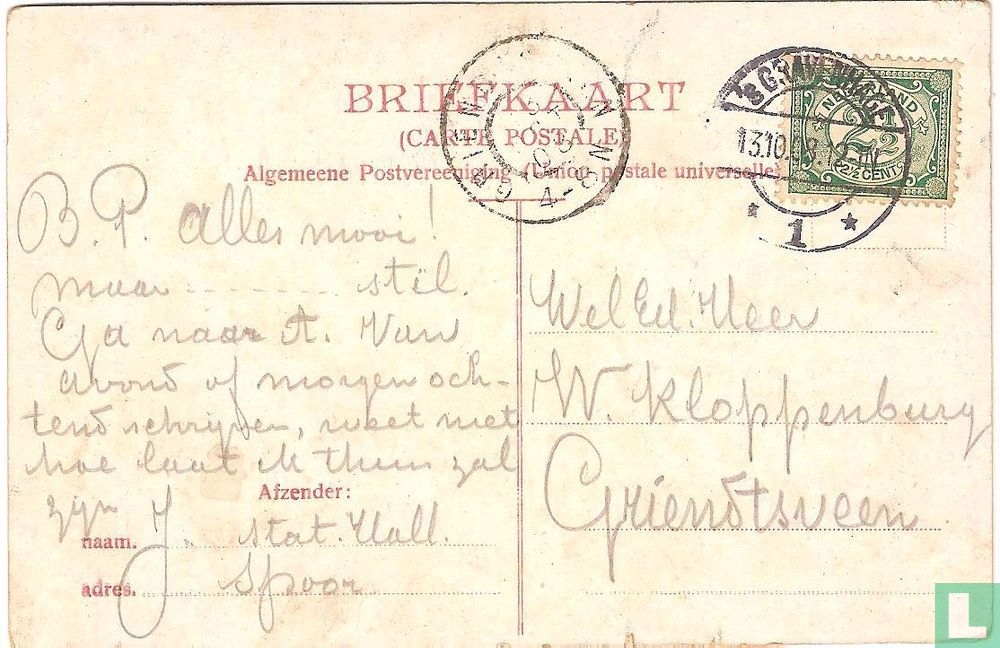 BRIEFKAART
(CARTE POSTALE)
Algemeene Postvereeniging (Union postale universelle)
'SGRAVENHAGE
13.10.08
1
NEDERLAND
2½
(2½ CENT)
GRIENDTSVEEN
4-8N
B. P. Alles mooi!
maar ........ stil.
Ga naar A. Van
avond of morgen och-
tend schrijven, weet niet
hoe laat ik thuis zal
zijn
Afzender:
naam. J. Stat. Hall.
adres. Spoor
WelEd. Heer
W. Kloppenburg
Griendtsveen
L